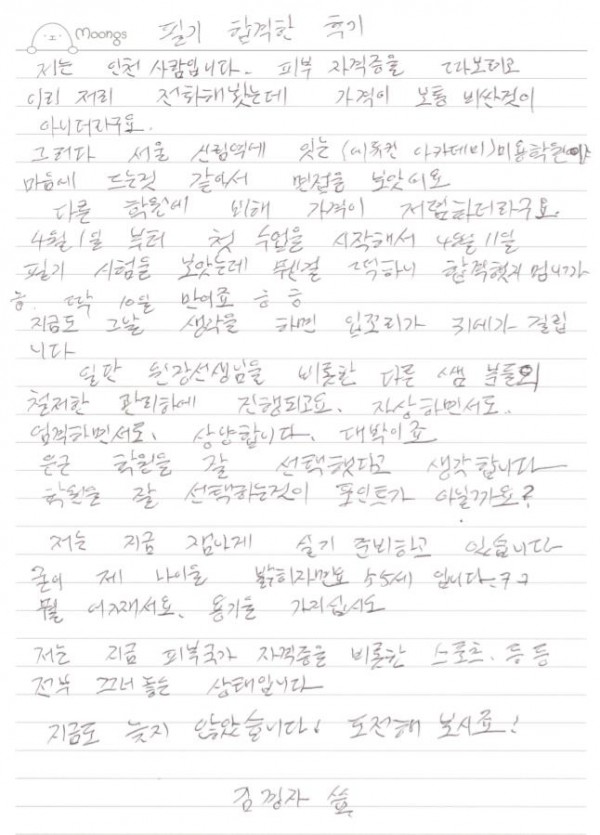 Moongs 필기 합격한 후기
저는 인천 사람입니다. 피부 자격증을 따보려고
이리 저리 전화해 봤는데 가격이 보통 비싼것이
아니더라구요.
그러다 서울 신림역에 있는 (이휴컨 아카데미) 미용학원이
마음에 드는것 같아서 면접을 보았어요
다른 학원에 비해 가격이 저렴하더라구요.
4월 1일 부터 첫 수업을 시작해서 4월 11일
필기 시험을 보았는데 뭔걸 떡하니 합격했지 멉니까
ㅎ. 딱 10일 만이죠 ㅎ ㅎ
지금도 그날 생각을 하면 입꼬리가 귀에가 걸립
니다
일단 원장선생님을 비롯한 다른 쌤 분들의
철저한 관리하에 진행되고요. 자상하면서도.
엄격하면서도. 상냥합니다. 대박이죠
은근 학원을 잘 선택했다고 생각합니다
학원을 잘 선택하는것이 포인트가 아닐까요?
저는 지금 잼나게 실기 준비하고 있습니다
굳이 제 나이를 밝히자면요 55세 입니다 ㅋㅋ
뭘 어째서요. 용기를 가지십시요
저는 지금 피부국가 자격증을 비롯한 스포츠. 등등
전부 끊어 놓은 상태입니다
지금도 늦지 않았습니다! 도전해 보시죠!
김경자 씀